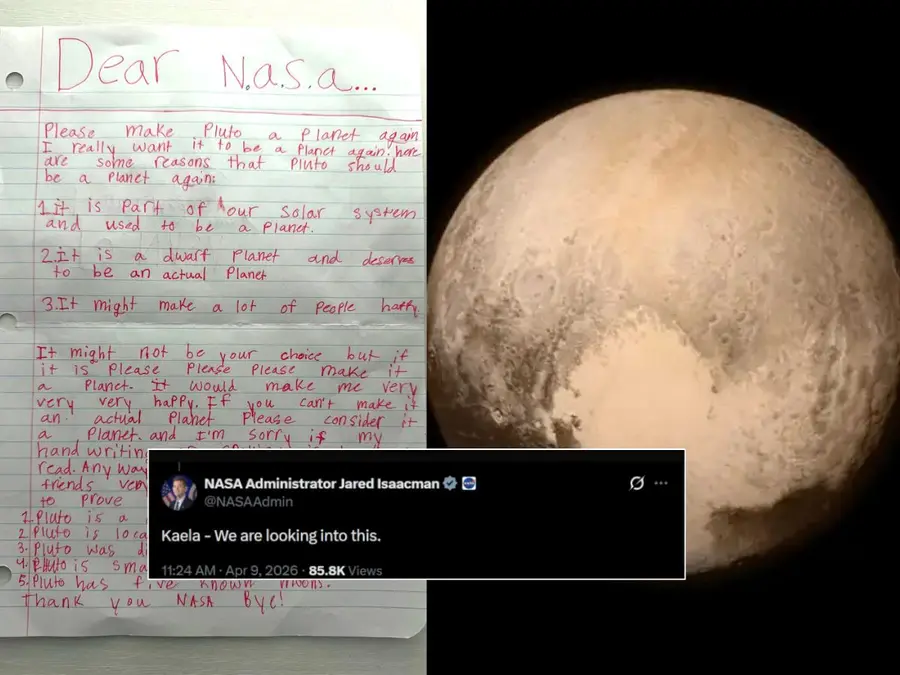 Dear N.a.s.a...
Please make Pluto a Planet again
I really want it to be a Planet again. here
are some reasons that Pluto should
be a Planet again:
1.It is Part of our Solar system
and used to be a Planet.
2.It is a dwarf Planet and deserves
to be an actual Planet
3.It might make a lot of People happy.
It might not be your choice but if
it is Please Please Please make it
a Planet. It would make me very
very very happy. If you can't make it
an actual Planet Please consider it
a Planet. and I'm sorry if my
hand writing
read. Any way
friends
to prove
1.Pluto is a
2 Pluto is
3. Pluto was
4. Pluto is
5. Pluto has five known moons.
Thank you NASA Bye!
NASA Administrator Jared Isaacman
@NASAAdmin
Kaela - We are looking into this.
11:24 AM · Apr 9, 2026 · 85.8K Views